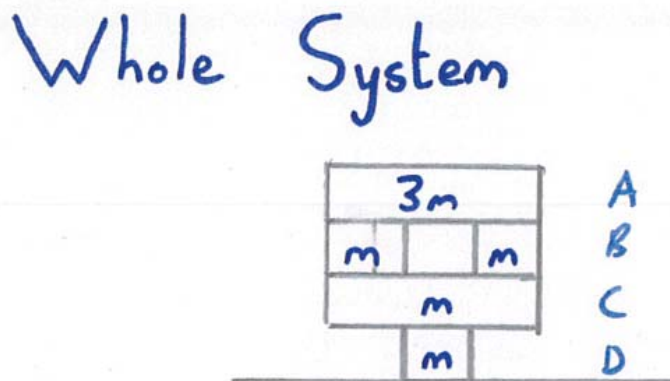 Whole System
3m A
m m B
m C
m D